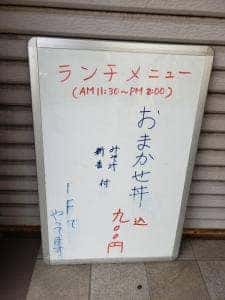 ランチメニュー
(AM11:30~PM2:00)
おまかせ丼
込
九〇〇円
みそ汁
新香
付
1Fで
やってます